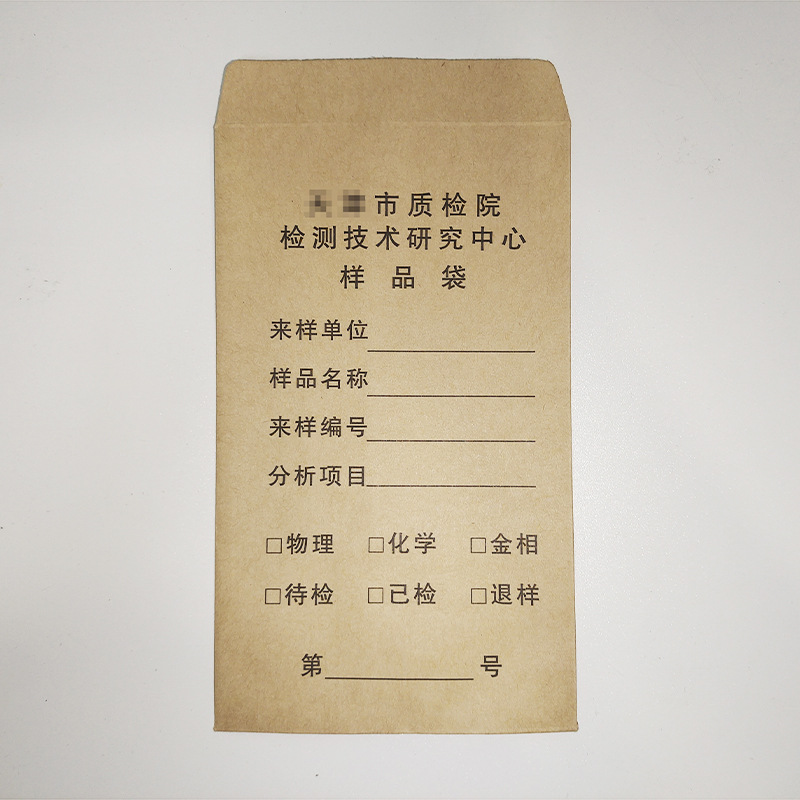 市质检院
检测技术研究中心
样品袋
来样单位
样品名称
来样编号
分析项目
□物理 □化学 □金相
□待检 □已检 □退样
第 号